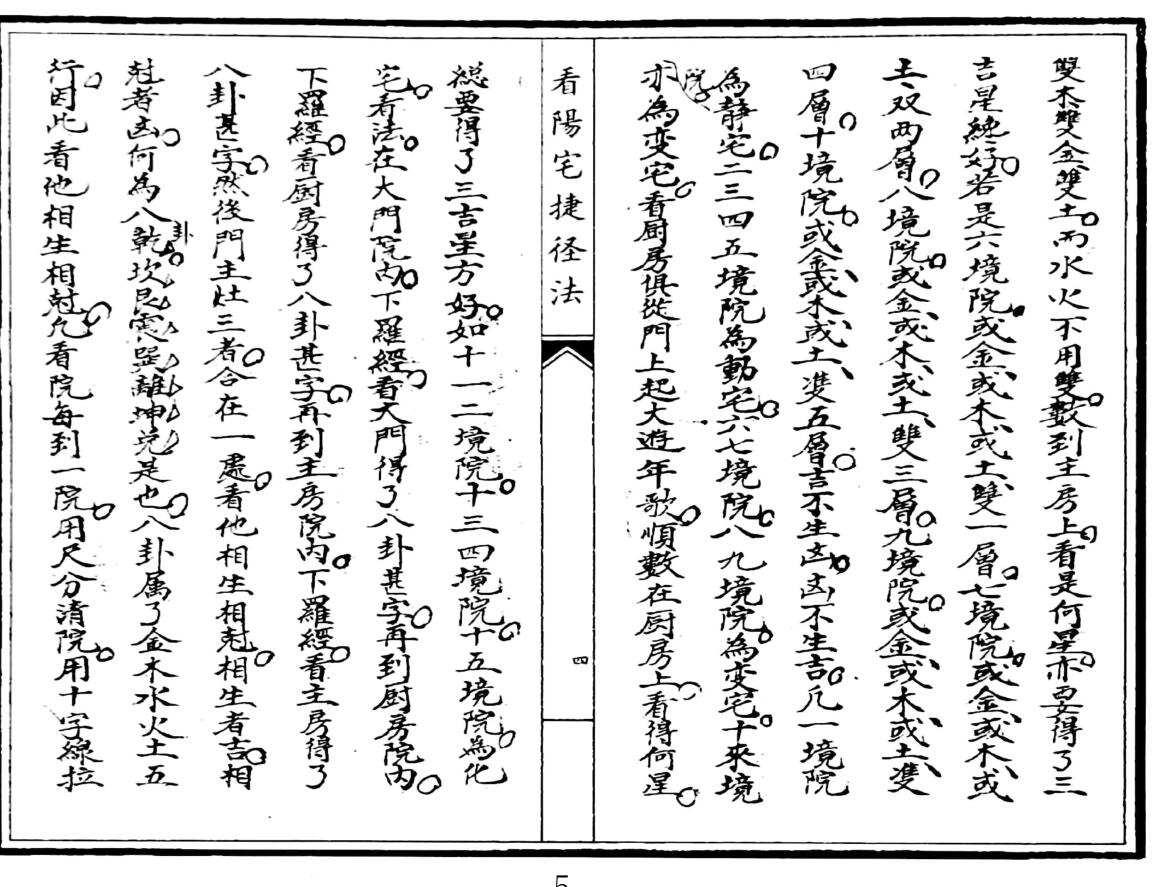 雙木雙金雙土。而水火不用雙數。到主房上。看是何星。亦要得了三
吉星纔好。若是六境院。或金或木、或土、雙一層。七境院。或金、或木、或
土、双两層。八境院。或金、或木、或土、雙三層。九境院。或金、或木、或土、雙
四層。十境院。或金、或木、或土、雙五層。吉不生凶。凶不生吉。凡一境院
為静宅。二三四五境院為動宅。六七境院。八九境院。為变宅。十來境
院。亦為变宅。看厨房俱從門上起大遊年歌。順數在厨房上。看得何星。
看陽宅捷径法
四
総要得了三吉星方好。如十一二境院。十三四境院。十五境院。為化
宅。看法。在大門院内。下羅經。看大門得了八卦甚字。再到厨房院内。
下羅經。看厨房得了八卦甚字。再到主房院内。下羅經。看主房得了
八卦甚字。然後門主灶三者。合在一處。看他相生相尅。相生者吉。相
尅者凶。何為八卦。乾坎艮震巽離坤兑是也。八卦属了金木水火土五
行。因此看他相生相尅。凡看院每到一院。用尺分清院。用十字線拉
5